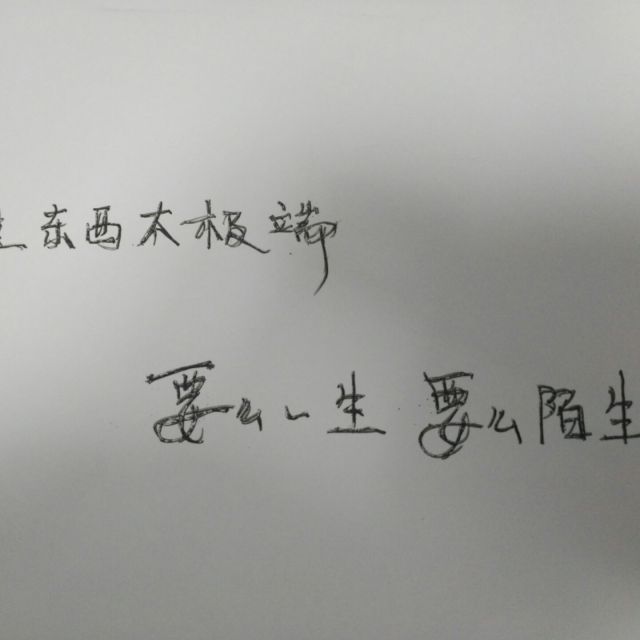 东西太极端
要么一生 要么陌生